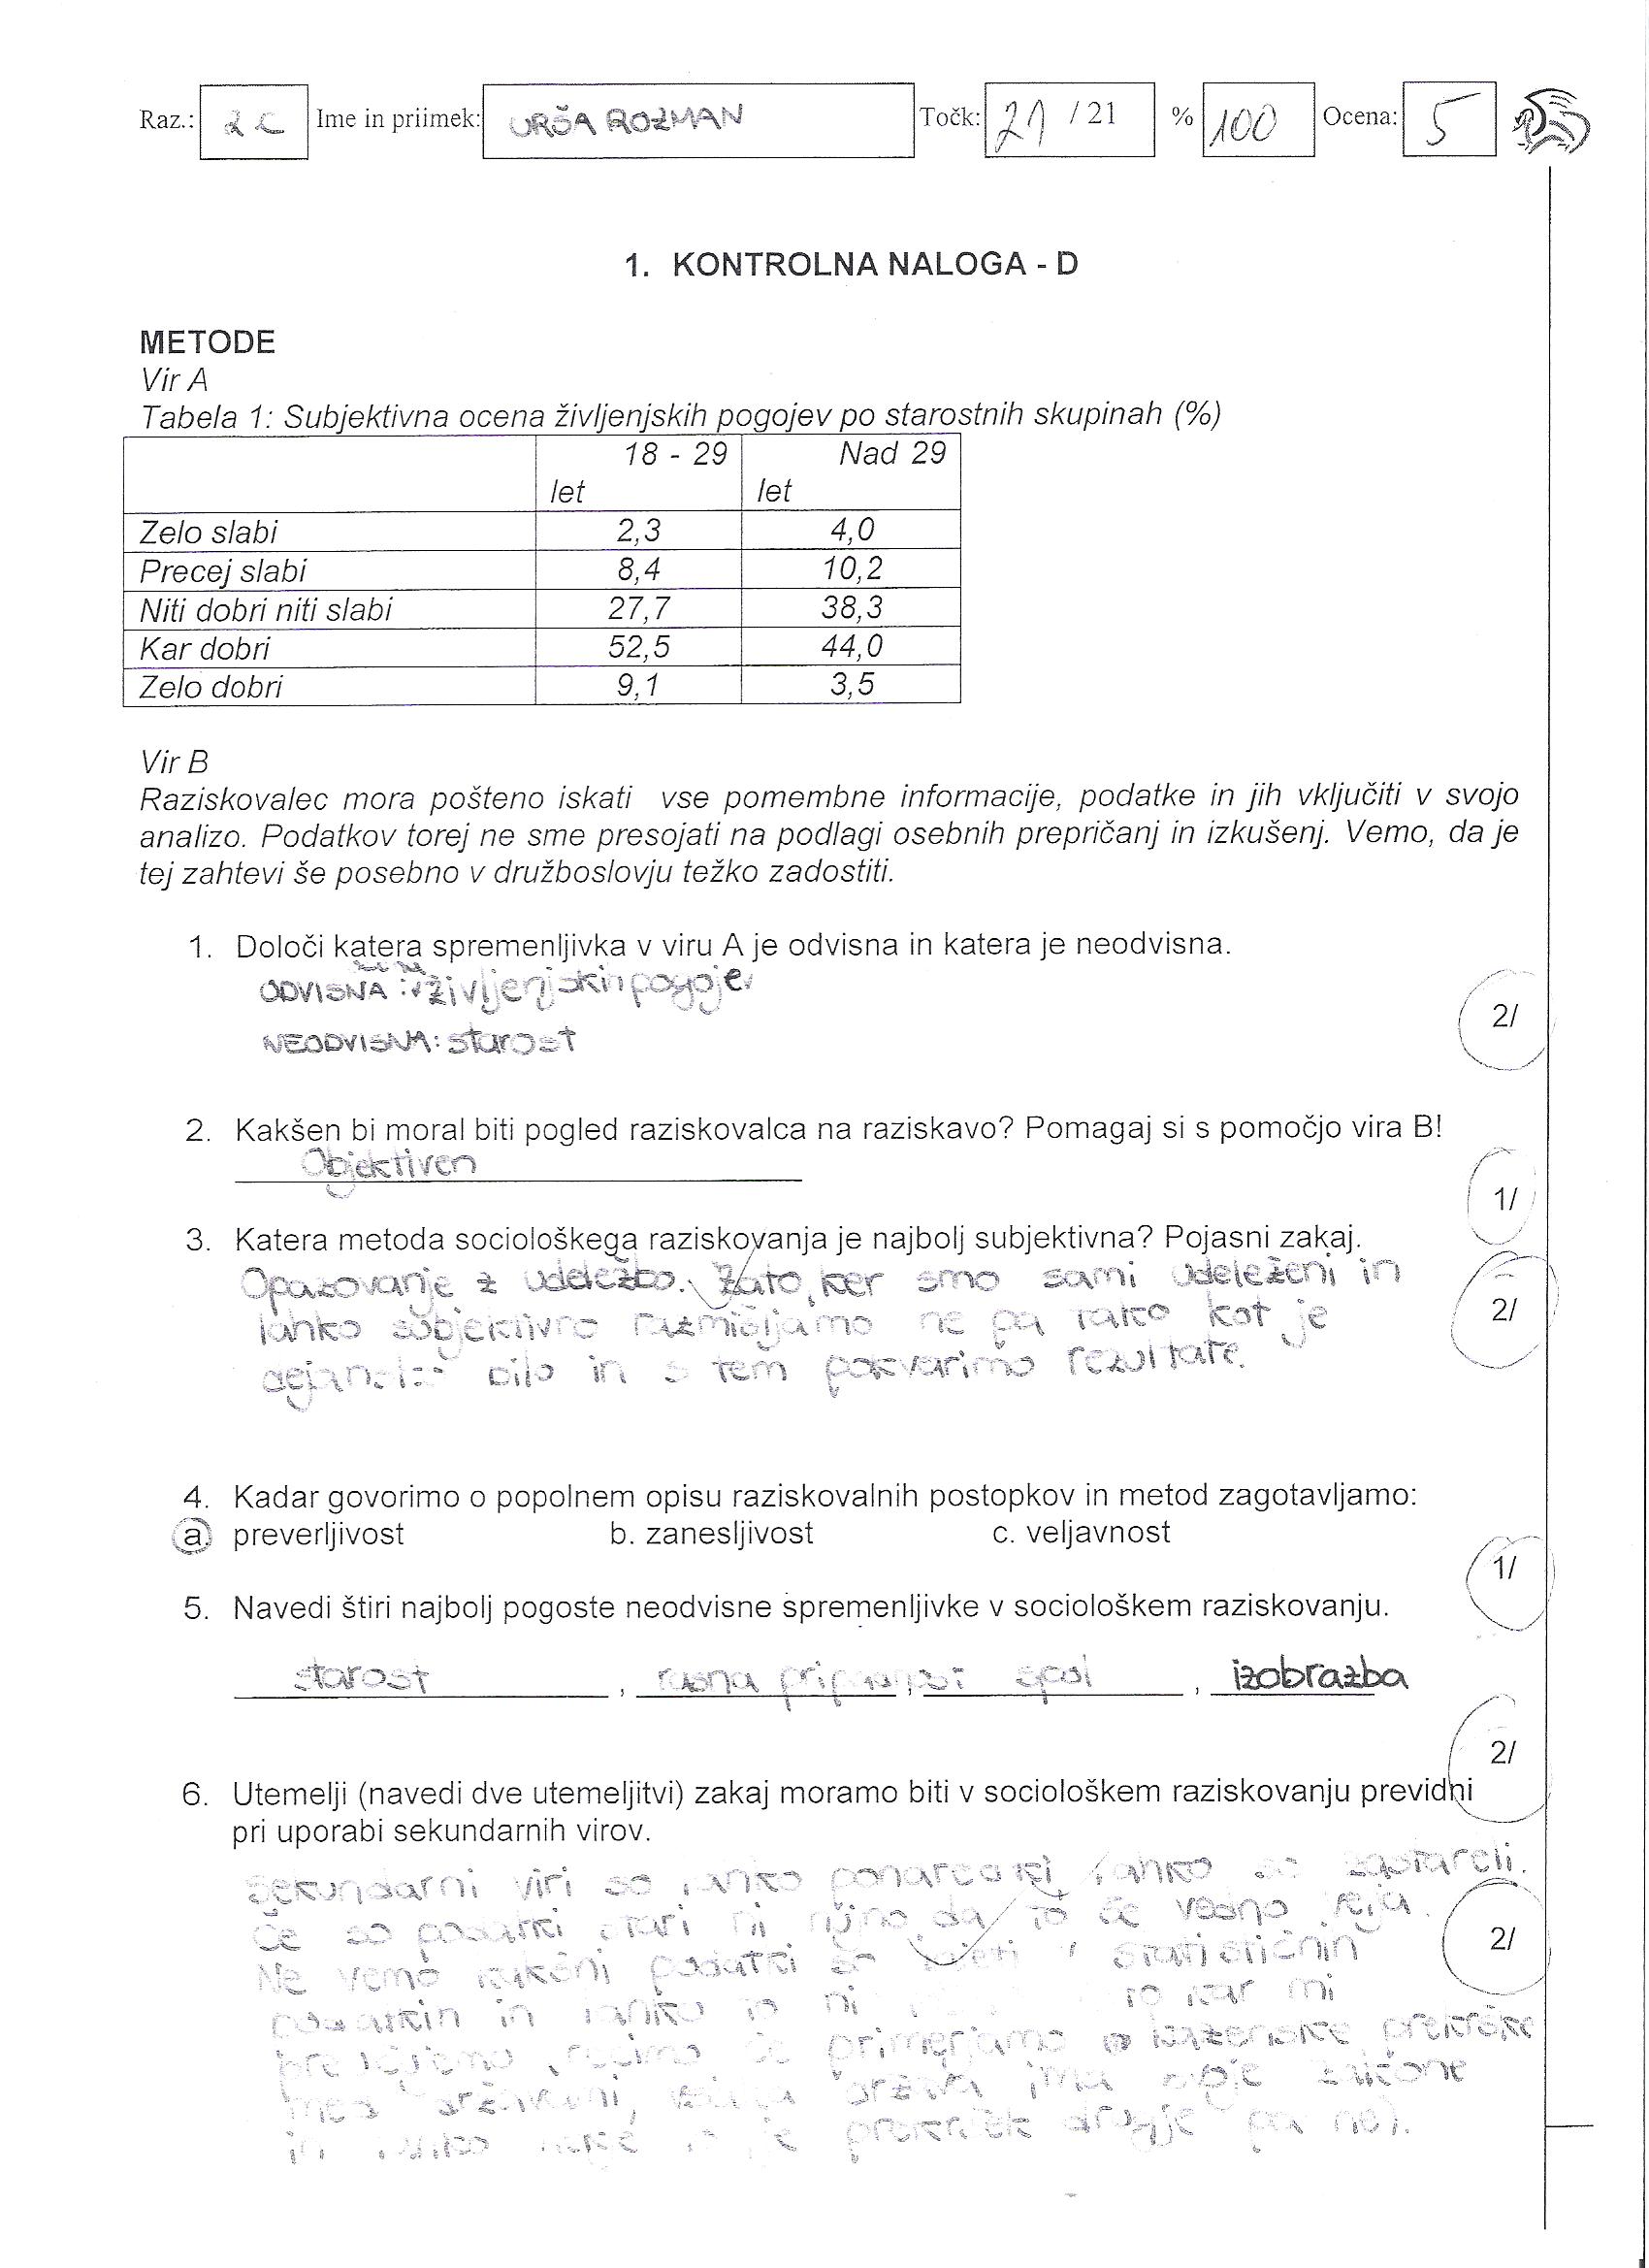 Raz.: 2C Ime in priimek: URŠA ROZMAN Točk: 21 / 21 % 100 Ocena: 5
1. KONTROLNA NALOGA - D
METODE
Vir A
Tabela 1: Subjektivna ocena življenjskih pogojev po starostnih skupinah (%)
18 - 29 let Nad 29 let
Zelo slabi 2,3 4,0
Precej slabi 8,4 10,2
Niti dobri niti slabi 27,7 38,3
Kar dobri 52,5 44,0
Zelo dobri 9,1 3,5
Vir B
Raziskovalec mora pošteno iskati vse pomembne informacije, podatke in jih vključiti v svojo
analizo. Podatkov torej ne sme presojati na podlagi osebnih prepričanj in izkušenj. Vemo, da je
tej zahtevi še posebno v družboslovju težko zadostiti.
1. Določi katera spremenljivka v viru A je odvisna in katera je neodvisna.
ODVISNA: življenjskih pogojev
2/
NEODVISNA: starost
2. Kakšen bi moral biti pogled raziskovalca na raziskavo? Pomagaj si s pomočjo vira B!
Objektiven
1/
3. Katera metoda sociološkega raziskovanja je najbolj subjektivna? Pojasni zakaj.
Opazovanje z udeležbo. Zato, ker smo sami udeleženi in
lahko subjektivno razmišljamo ne pa tako kot je
2/
dejansko bilo in s tem pokvarimo rezultate.
4. Kadar govorimo o popolnem opisu raziskovalnih postopkov in metod zagotavljamo:
a. preverljivost b. zanesljivost c. veljavnost
1/
5. Navedi štiri najbolj pogoste neodvisne spremenljivke v sociološkem raziskovanju.
starost , rasna pripadnost , spol , izobrazba
2/
6. Utemelji (navedi dve utemeljitvi) zakaj moramo biti v sociološkem raziskovanju previdni
pri uporabi sekundarnih virov.
Sekundarni viri so lahko ponarejeni lahko so zastareli.
Če so podatki stari ni nujno da to še vedno velja.
2/
Ne vemo kakšni podatki so zajeti v statističnih
podatkih in lahko to ni to kar mi
primerjamo kazenske prekrške
med državami, vsaka država ima svoje zakone
in lahko nekje je prekršek drugje pa ne).